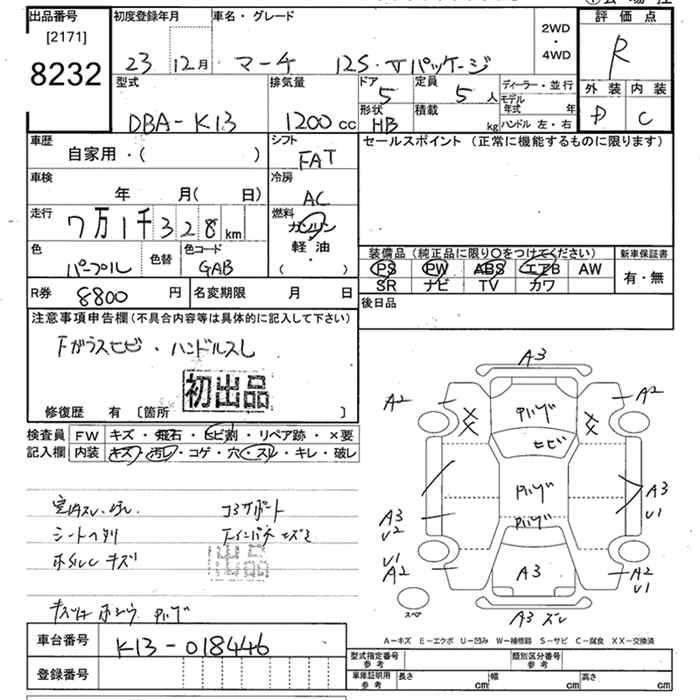 出品番号
[2171]
8232
初度登録年月
23 12月
車名・グレード
マーチ 12S・Vパッケージ
2WD
・
4WD
評価点
R
外装 内装
D C
型式
DBA-K13
排気量
1200cc
ドア
5
形状
HB
定員
5人
積載
kg
ディーラー・並行
モデル年式 年
ハンドル 左・右
車歴
自家用・( )
シフト
FAT
車検
年 月( 日)
冷房
AC
走行
7万1千328km
燃料
ガソリン
軽・油
( )
色
パープル
色替
色コード
GAB
R券
8800円
名変期限 月 日
セールスポイント(正常に機能するものに限ります)
装備品(純正品に限り○をつけてください)
PS PW ABS エアB AW
SR ナビ TV カワ
新車保証書
有・無
後日品
注意事項申告欄(不具合内容等は具体的に記入して下さい)
Fガラスヒビ・ハンドルスレ
初出品
修復歴 有 〔箇所 〕
検査員記入欄
FW キズ・飛石・ヒビ割・リペア跡・×要
内装 キズ・汚レ・コゲ・穴・スレ・キレ・破レ
シートヘタリ
コアサポート
キズ
出品
A3
A2
A2
XX
XX
ヒビ
A3
U2
A3
U1
U1
A2
A2
U1
A3
A3 ズレ
スペア
A-キズ E-エクボ U-凹み W-補修跡 S-サビ C-腐食 XX-交換済
車台番号
K13-018446
登録番号
型式指定番号
参考
類別区分番号
参考
車庫証明用
参考
長さ cm
幅 cm
高さ cm